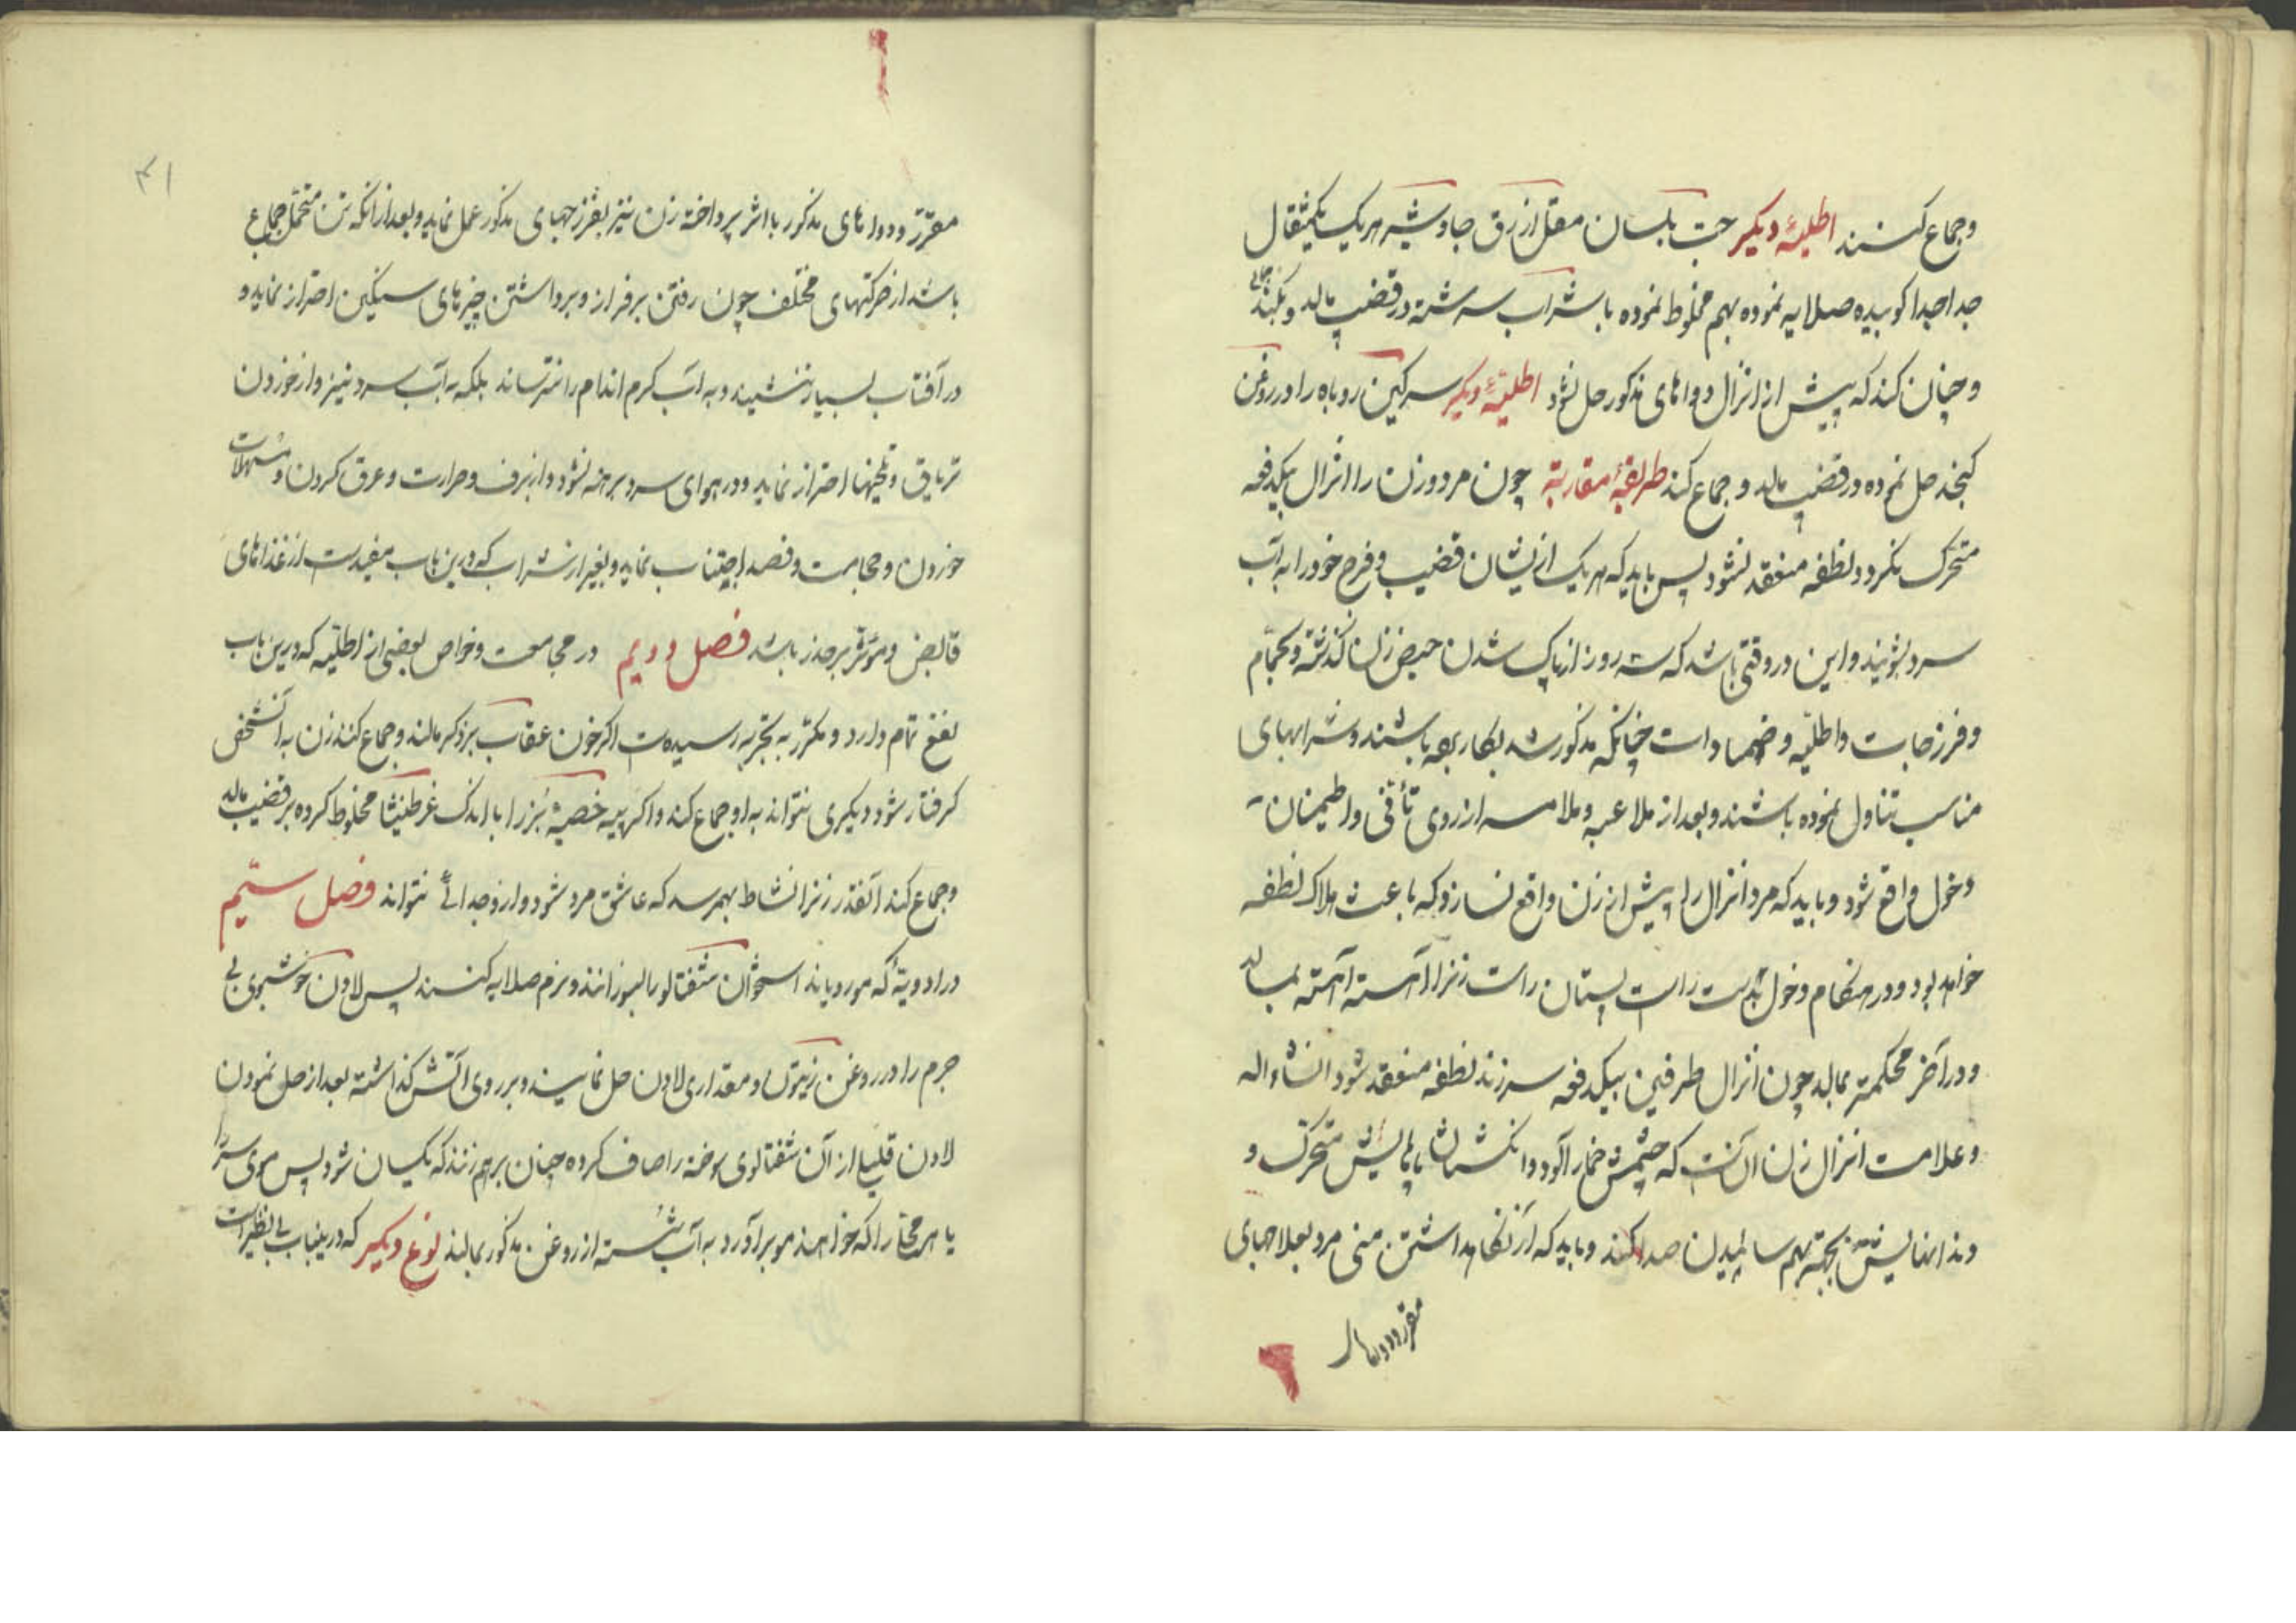 وجماع کنند اطلیهٔ دیگر حب بلسان مقل ازرق جاوشیر هر یک یکمثقال
جدا جدا کوبیده صلایه نموده بهم مخلوط نموده با شراب سرشته در قضیب مالد
و چنان کند که پیش از انزال دواهای مذکور حل شود اطلیهٔ دیگر سرکین روباه را در روغن
کنجد حل نموده در قضیب مالد و جماع کند طریقهٔ مقاربة چون مرد و زن را انزال بیکدفعه
متحرک نکردد نطفه منعقد نشود پس باید که هر یک ازیشان قضیب و فرج خود را به آب
سرد بشویند و این در وقتی باشد که سه روز از پاک شدن حیض زن کذشته و بحمام
و فرزجات و اطلیه و ضمادات چنانکه مذکور شد بکار برده باشند و شرابهای
مناسب تناول نموده باشند و بعد از ملاعبه و ملامسه از روی تأنی و اطمینان
دخول واقع شود و باید که مرد انزال را پیش از زن واقع نسازد که باعث هلاک نطفه
خواهد بود و در هنکام دخول بدست راست پستان راست زنرا آهسته آهسته بمالد
و در آخر محکمتر بمالد چون انزال طرفین بیکدفعه سر زند نطفه منعقد شود انشاء اله
و علامت انزال زن آنست که چشمش خمار آلود و انکشتان پایش متحرک و
دندانهایش بجهتهٔ بهم سائیدن صدا کند و باید که از نکاهداشتن منی مرد بعلاجهای
مقرر و دواها
۴۱
مقرر و دواهای مذکور با اثر پرداخته زن نیز بفرزجهای مذکور عمل نماید و بعد از آنکه زن متحمل جماع
باشد از حرکتهای مختلف چون رفتن بر فراز و برداشتن چیزهای سنکین احتراز نماید و
در آفتاب بسیار ننشیند و به آب کرم اندام را نترساند بلکه به آب سرد نیز و از خوردن
تریاق و تلخیها احتراز نماید و در هوای سرد برهنه نشود و از برف و حرارت و عرق کردن و مسهلات
خوردن و حجامت و فصد اجتناب نماید و بغیر از شراب که درین باب مفیدست از غذاهای
قابض و موثر بر حذر باشد فصل دویم در مجامعت و خواص بعضی از اطلیه که درین باب
نفع تمام دارد و مکرر به تجربه رسیده است اکر خون عقاب بر ذکر مالند و جماع کنند زن به آنشخص
کرفتار شود دیکری نتواند به او جماع کند و اکر پیه خصیهٔ بز را با اندک غرطنیثا مخلوط کرده بر قضیب مالد
و جماع کند آنقدر زنرا نشاط بهم رسد که عاشق مرد شود و از و جدائی نتواند فصل سیّم
در ادویهٔ که مو رویاند استخوان شفتالو را بسوزانند و نرم صلایه کنند پس لادن خوشبوی بی
جرم را در روغن زیتون و مقداری لادن حل نمایند و بر روی آتش کذاشته بعد از حل نمودن
لادن قلیلی از آن شفتالوی سوخته را اضاف کرده چنان برهم زنند که یکسان شود پس موی سر را
یا هر محل را که خواهند مو برآورد به آب شسته از روغن مذکور بمالند نوع دیگر که درینباب بی نظیر است